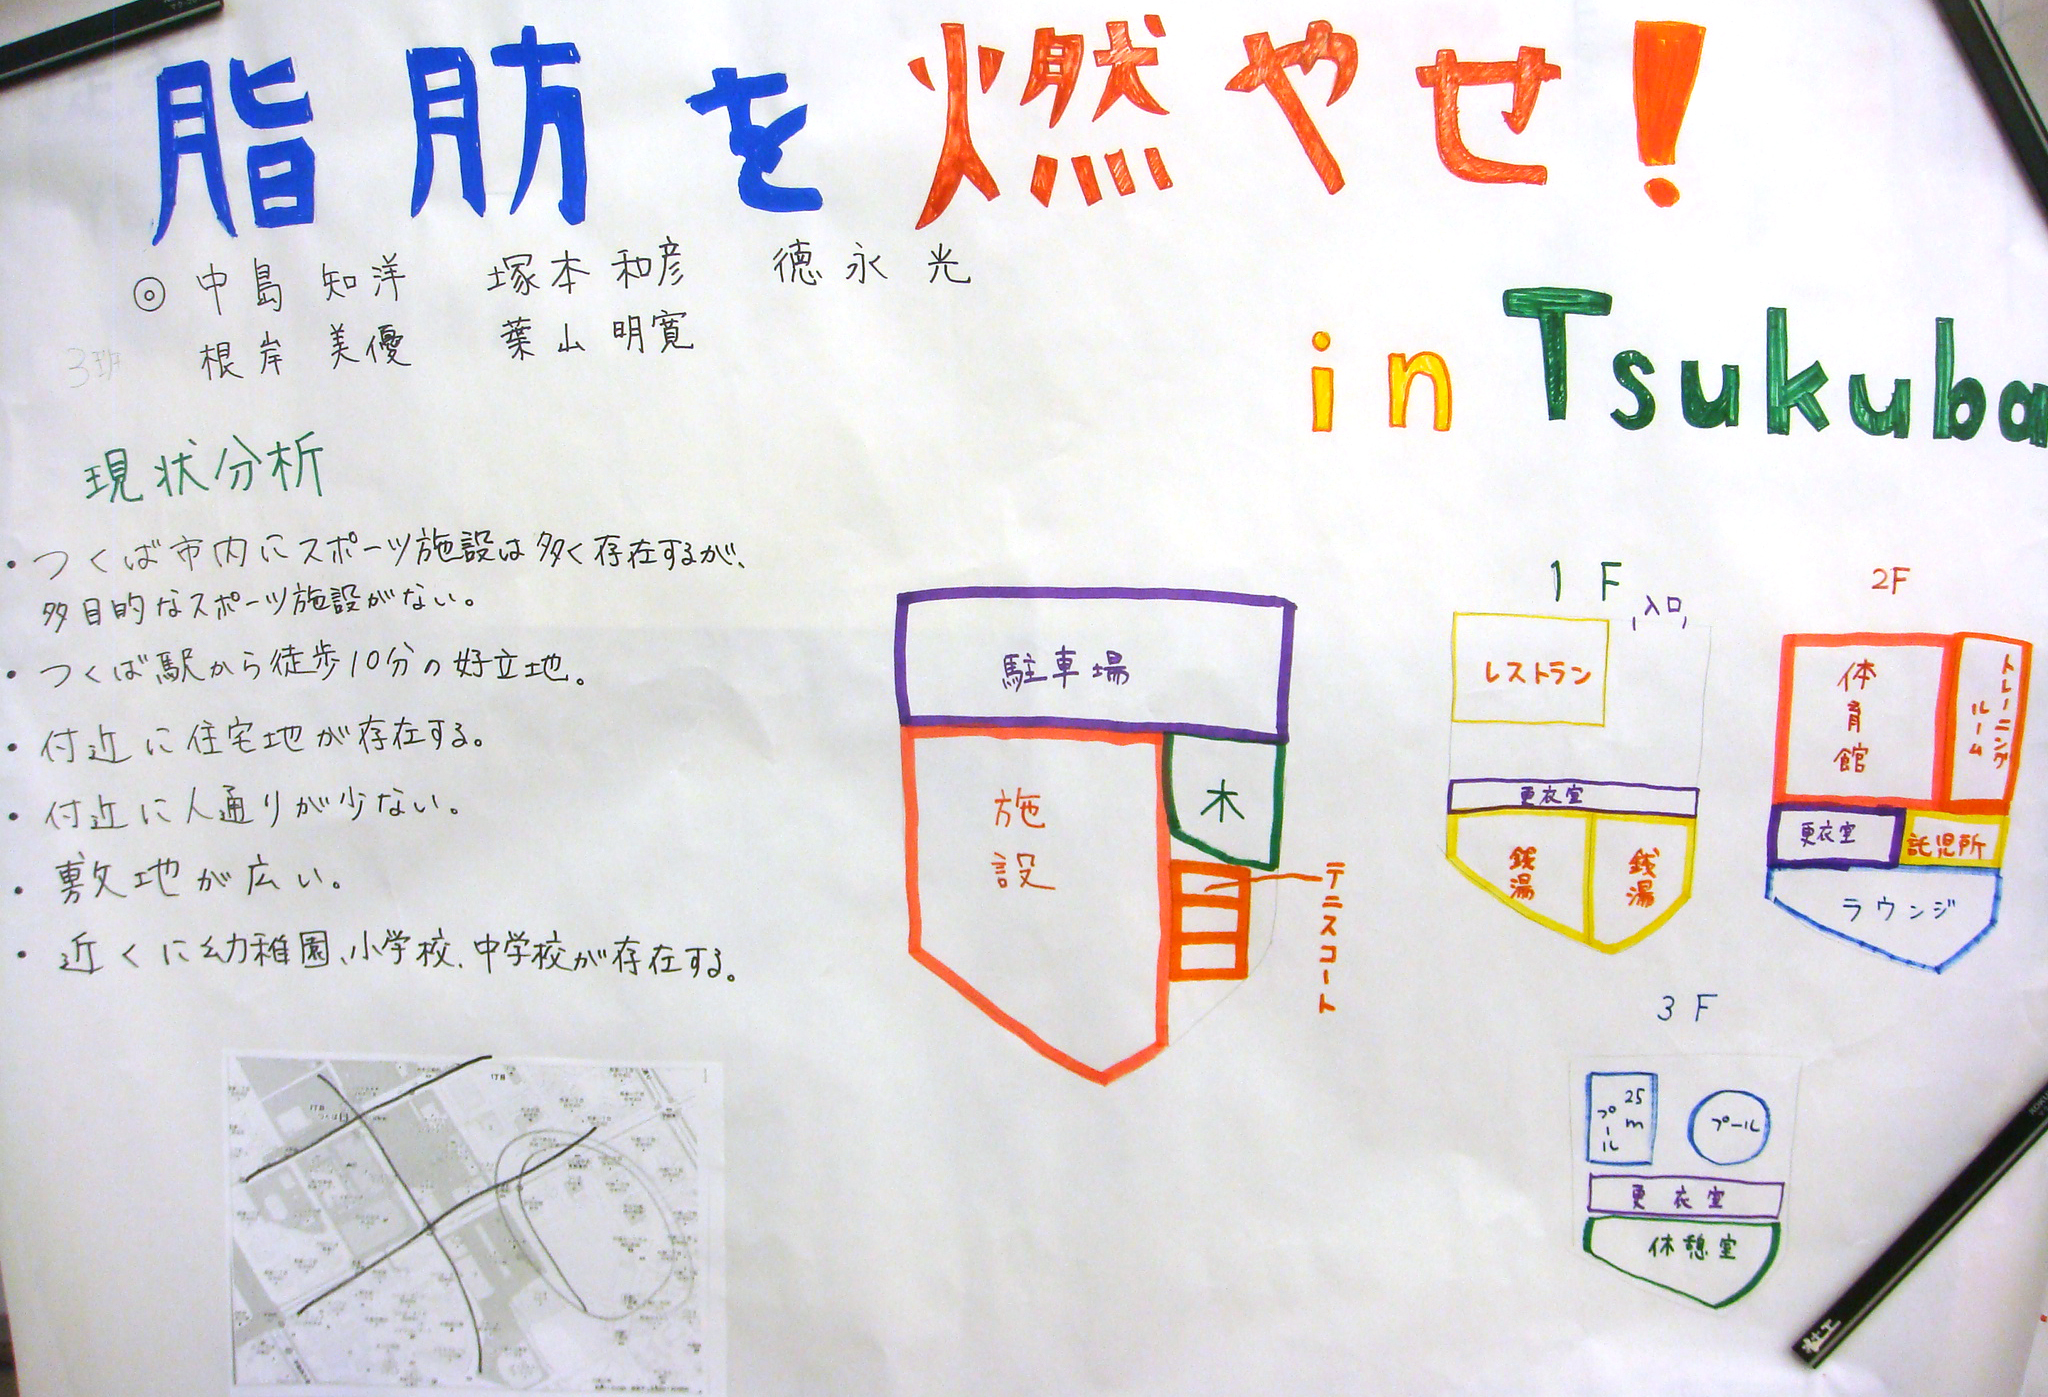 脂肪を燃やせ!
in Tsukuba
◎ 中島 知洋 塚本 和彦 徳永 光
3班 根岸 美優 葉山 明寛
現状分析
・つくば市内にスポーツ施設は多く存在するが、
多目的なスポーツ施設がない。
・つくば駅から徒歩10分の好立地。
・付近に住宅地が存在する。
・付近に人通りが少ない。
・敷地が広い。
・近くに幼稚園、小学校、中学校が存在する。
駐車場
施設
木
テニスコート
1F
入口
レストラン
更衣室
銭湯
銭湯
2F
体育館
トレーニング
ルーム
更衣室
託児所
ラウンジ
3F
25m
プール
プール
更衣室
休憩室